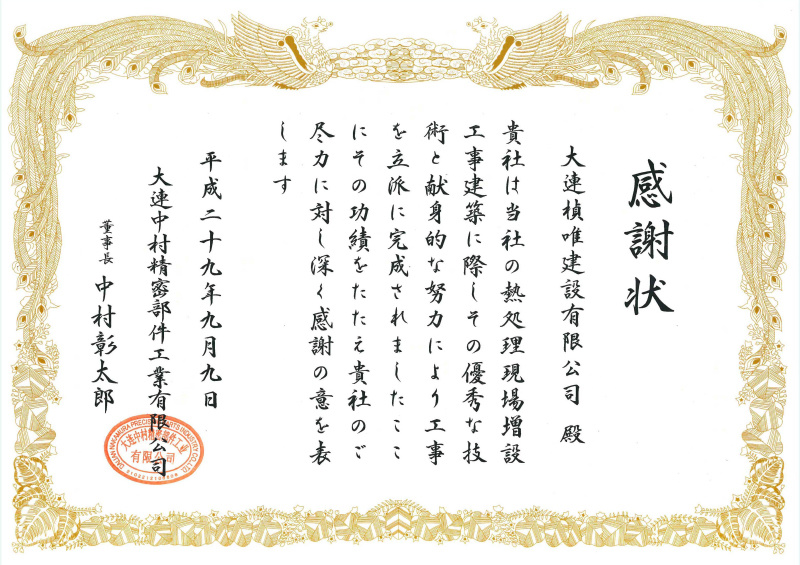 感謝状
大連楨唯建設有限公司 殿
貴社は当社の熱処理現場増設
工事建築に際しその優秀な技
術と献身的な努力により工事
を立派に完成されましたここ
にその功績をたたえ貴社のご
尽力に対し深く感謝の意を表
します
平成二十九年九月九日
大連中村精密部件工業有限公司
董事長 中村彰太郎
DALIAN NAKAMURA PRECISION PARTS INDUSTRY CO.,LTD.
大连中村精密部件工业
有限公司